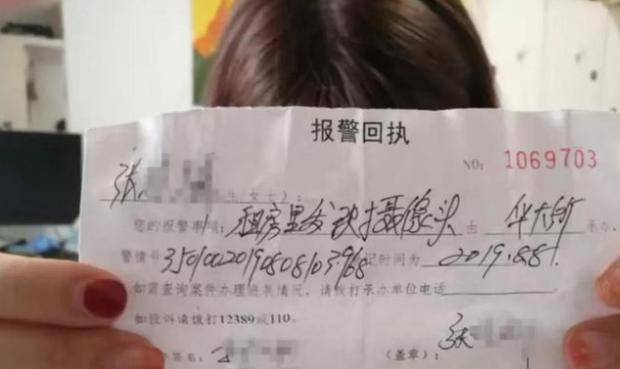 报警回执
NO: 1069703
张
(先生/女士):
您的报警事项: 租房里发现摄像头 由 华大所 承办.
警情号 3501002019080803968 记时间为 2019.8.8.
如需查询案件办理进展情况, 请拨打承办单位电话
如投诉请拨打12389或110.
签名: (盖章):